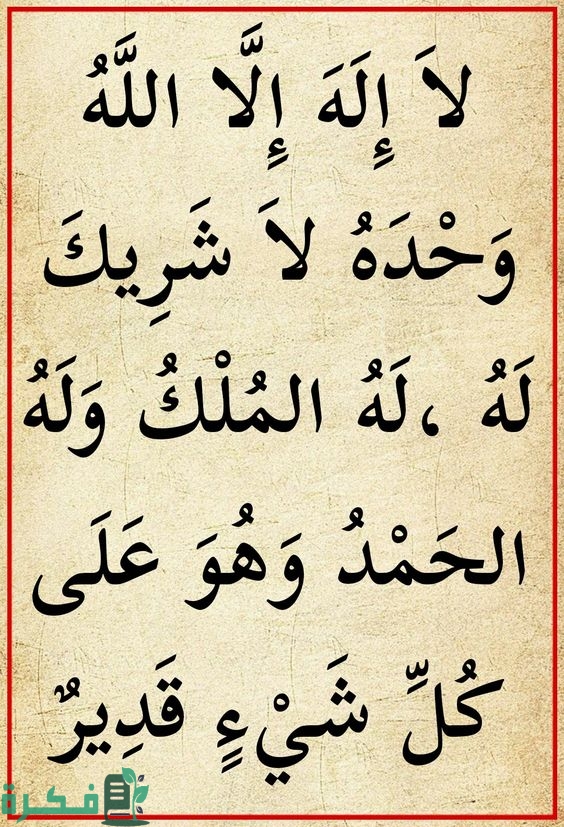 لاَ إِلَهَ إِلَّا اللَّهُ
وَحْدَهُ لاَ شَرِيكَ
لَهُ ،لَهُ المُلْكُ وَلَهُ
الحَمْدُ وَهُوَ عَلَى
كُلِّ شَيْءٍ قَدِيرٌ
فكرة